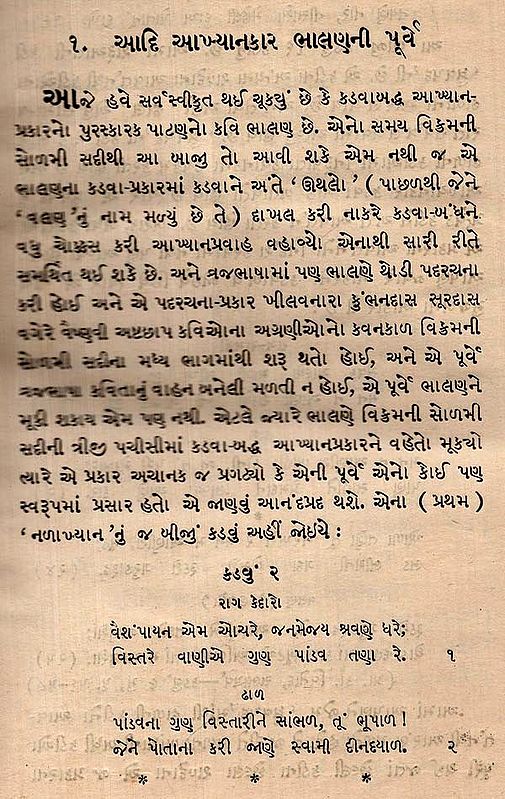 ૧. આદિ આખ્યાનકાર ભાલણની પૂર્વે
આજે હવે સર્વસ્વીકૃત થઈ ચૂકયું છે કે કડવાબદ્ધ આખ્યાન-
પ્રકારનો પુરસ્કારક પાટણનો કવિ ભાલણ છે. એનો સમય વિક્રમની
સોળમી સદીથી આ બાજુ તો આવી શકે એમ નથી જ એ
ભાલણના કડવા-પ્રકારમાં કડવાને અંતે ‘ઊથલો’ (પાછળથી જેને
‘વલણ’નું નામ મળ્યું છે તે) દાખલ કરી નાકરે કડવા-બંધને
વધુ ચોક્કસ કરી આખ્યાનપ્રવાહ વહાવ્યો એનાથી સારી રીતે
સમર્થિત થઈ શકે છે. અને વ્રજભાષામાં પણ ભાલણે થોડી પદરચના
કરી હોઈ અને એ પદરચના-પ્રકાર ખીલવનારા કુંભનદાસ સૂરદાસ
વગેરે વૈષ્ણવી અષ્ટછાપ કવિઓના અગ્રણીઓનો કવનકાળ વિક્રમની
સોળમી સદીના મધ્ય ભાગમાંથી શરૂ થતો હોઈ, અને એ પૂર્વે
વ્રજભાષા કવિતાનું વાહન બનેલી મળતી ન હોઈ, એ પૂર્વે ભાલણને
મૂકી શકાય એમ પણ નથી. એટલે જ્યારે ભાલણે વિક્રમની સોળમી
સદીની ત્રીજી પચીસીમાં કડવા-બદ્ધ આખ્યાનપ્રકારને વહેતો મૂક્યો
ત્યારે એ પ્રકાર અચાનક જ પ્રગટ્યો કે એની પૂર્વે એનો કોઈ પણ
સ્વરૂપમાં પ્રસાર હતો એ જાણવું આનંદપ્રદ થશે. એના (પ્રથમ)
‘નળાખ્યાન’નું જ બીજું કડવું અહીં જોઈયે :
કડવું ૨
રાગ કેદારો
વૈશંપાયન એમ ઓચરે, જનમેજય શ્રવણે ધરે;
વિસ્તરે વાણીએ ગુણ પાંડવ તણા રે. ૧
ઢાળ
પાંડવના ગુણ વિસ્તારીને સાંભળ, તૂં ભૂપાળ!
જેને પોતાના કરી જાણે સ્વામી દીનદયાળ. ૨
* * *